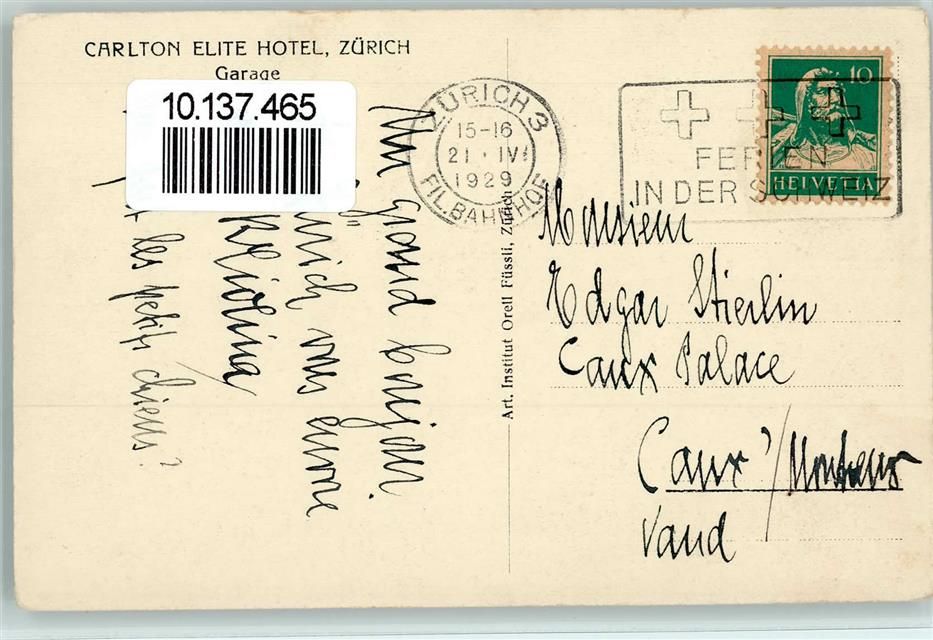 CARLTON ELITE HOTEL, ZÜRICH
Garage
10.137.465
ZÜRICH 3
15-16
21·IV
1929
FIL.BAHNHOF
FERIEN
IN DER SCHWEIZ
10
HELVETIA
Art. Institut Orell Füssli, Zürich
Un grand bonjour
vous envoie
les petits chiens?
Monsieur
Edgar Stierlin
Caux Palace
Caux s/Montreux
Vaud